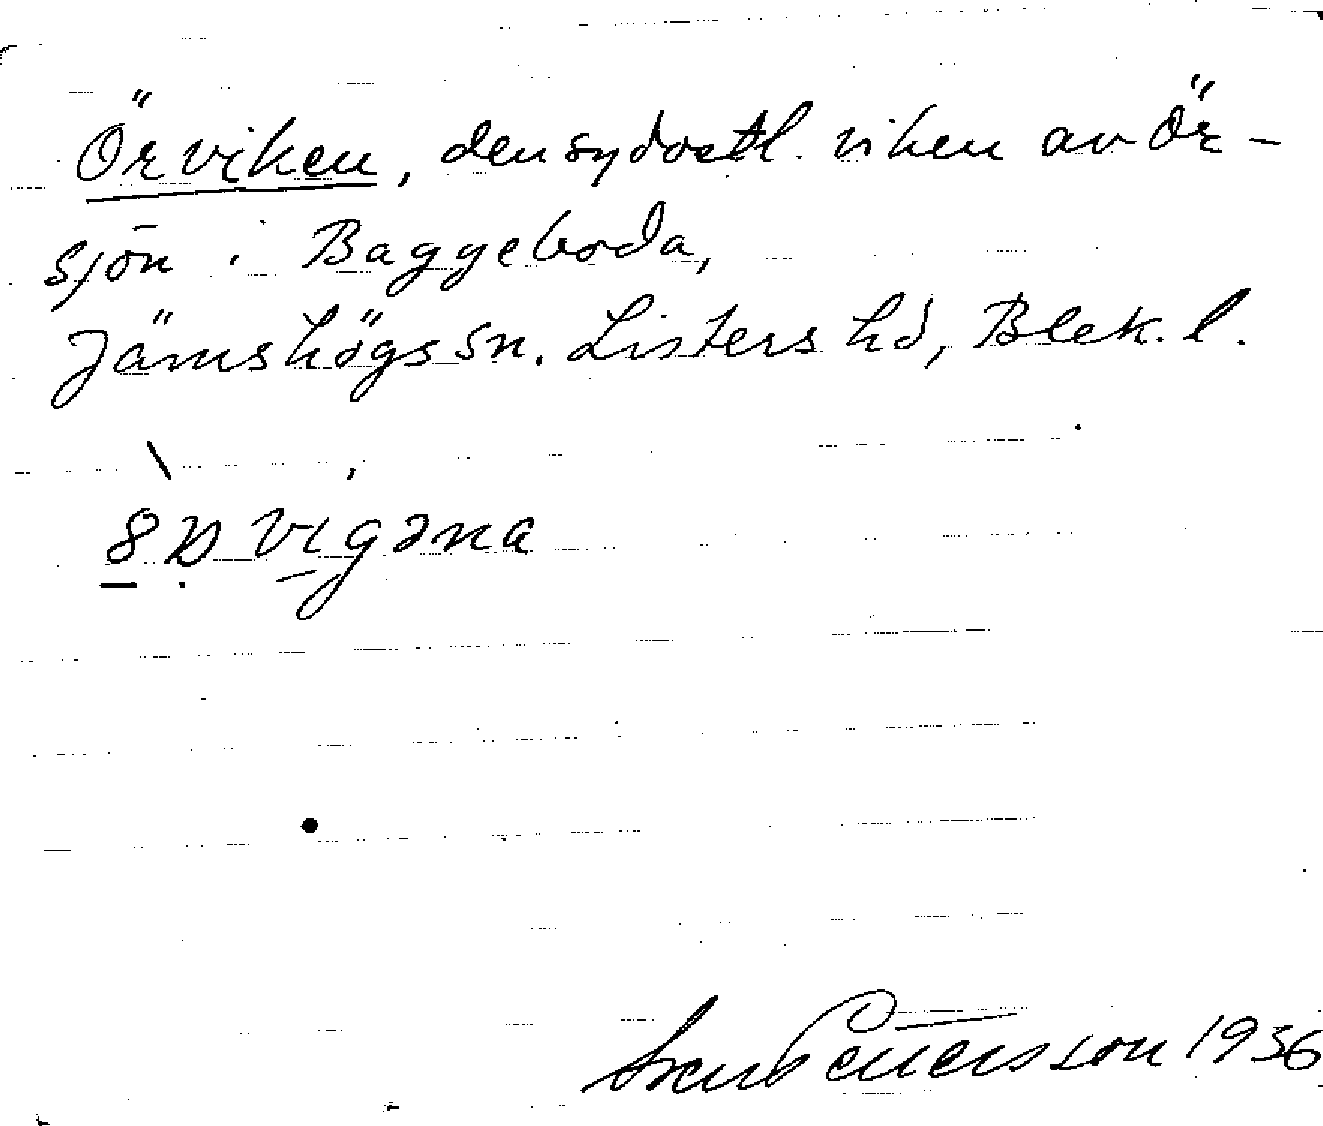 Örviken, den sydostl. viken av Ör-
sjön i Baggeboda,
Jämshögs sn. Listers hd, Blek. l.
Pettersson 1936